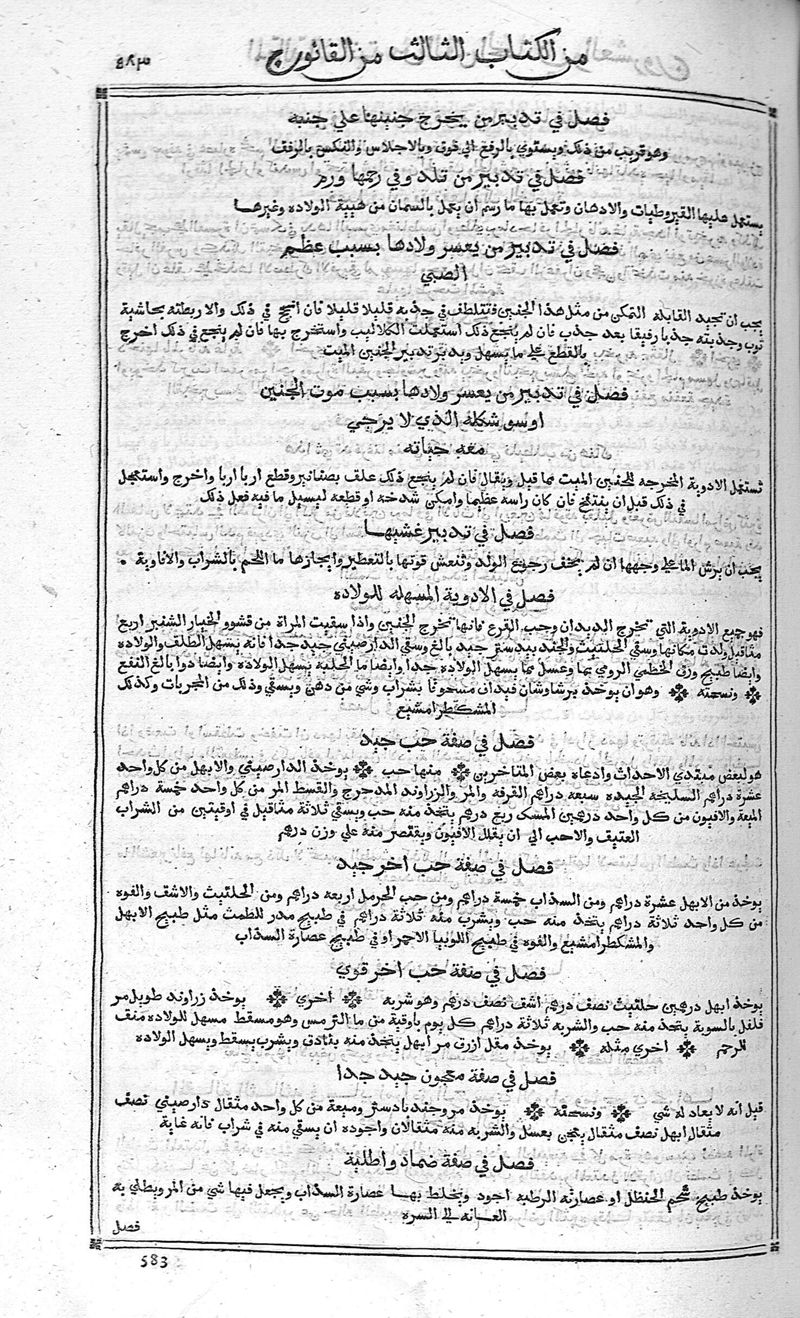 من الكتاب الثالث من القانون ج ٤٨٣
فصل في تدبير من يخرج جنينها علي جنبه
وهو قريب من ذلك ويستوي بالرفع الي فوق وبالاجلاس والتنكيس بالرفق
فصل في تدبير من تلد وفي رحمها ورم
يستعمل عليها القيروطيات والادهان وتعمل بها ما رسم ان يعمل بالسمان من هيية الولاده وغيرها
فصل في تدبير من يعسر ولادها بسبب عظم
الصبي
يجب ان تجيد القابله التمكن من مثل هذا الجنين فتتلطف في جذبه قليلا قليلا فان انجح في ذلك والا ربطته بحاشية
ثوب وجذبته جذبا رفيقا بعد جذب فان لم ينجع ذلك استعملت الكلاليب واستخرج بها فان لم ينجع في ذلك اخرج
بالقطع علي ما يسهل ويدبر تدبير الجنين الميت
فصل في تدبير من يعسر ولادها بسبب موت الجنين
او سو شكله الذي لا يرجي
معه حياته
تستعمل الادوية المخرجه للجنين الميت مما قيل ويقال فان لم ينجع ذلك علف بصنانير وقطع اربا اربا واخرج واستعجل
في ذلك قبل ان ينتفخ فان كان راسه عظيما وامكن شدخه او قطعه ليسيل ما فيه فعل ذلك
فصل في تدبير غشيها
يجب ان يرش الما علي وجهها ان لم يخف رجوع الولد وتنعش قوتها بالتعطير وايجارها ما اللحم بالشراب والافاوية .
فصل في الادوية المسهله للولاده
فهو جميع الادوية التي تخرج الديدان وحب القرع فانها تخرج الجنين واذا سقيت المراة من قشور الخيار الشنبر اربع
مثاقيل ولدت مكانها وسقي الحلتيت والجند بيدستر جيد بالغ وسقي الدارصيني جيد جدا فانه يسهل الطلف والولاده
وايضا طبيخ ورق الخطمي الرومي بما وعسل مما يسهل الولاده جدا وايضا ما الحلبه يسهل الولاده وايضا دوا بالغ النفع
ونسخته وهو ان يوخذ برشاوشان فيداف مسحوقا بشراب وشي من دهن ويسقي وذلك من المجربات وكذلك
المشكطرامشيع
فصل في صفة حب جيد
هو لبعض مبتدي الاحداث وادعاه بعض المتاخرين منها حب يوخذ الدارصيني والابهل من كل واحد
عشرة دراهم السليخه الجيده سبعه دراهم القرفه والمر والزراوند المدحرج والقسط المر من كل واحد خمسة دراهم
الميعة والافيون من كل واحد درهمين المسك ربع درهم يتخذ منه حب ويسقي ثلاثة مثاقيل في اوقيتين من الشراب
العتيف والاحب الي ان يقلل الافيون ويقتصر منه علي وزن درهم
فصل في صفة حب اخر جيد
يوخذ من الابهل عشرة دراهم ومن السذاب خمسة دراهم ومن حب الحرمل اربعه دراهم ومن الحلتيت والاشف والفوه
من كل واحد ثلاثة دراهم يتخذ منه حب ويشرب منه ثلاثة دراهم في طبيخ مدر للطمث مثل طبيخ الابهل
والمشكطرامشيع والفوه في طبيخ اللوبيا الاحمر او في طبيخ عصارة السذاب
فصل في صفة حب اخر قوي
يوخذ ابهل درهمين حلتيت نصف درهم اشف نصف درهم وهو شربه اخري يوخذ زراوند طويل مر
فلفل بالسوية يتخذ منه حب والشربه ثلاثة دراهم كل يوم باوقية من ما الترمس وهو مسقط مسهل للولاده منف
للرحم اخري مثله يوخذ مقل ازرق مر ابهل يتخذ منه بنادق ويشرب يسقط ويسهل الولاده
فصل في صفة معجون جيد جدا
قيل انه لا يعاد له شي ونسخته يوخذ مر وجند بادستر وميعة من كل واحد مثقال دارصيني نصف
مثقال ابهل نصف مثقال يعجن بعسل والشربه منه مثقالان واجوده ان يسقي منه في شراب فانه غاية
فصل في صفة ضماد واطلية
يوخذ طبيخ شحم الحنظل او عصارته الرطبه اجود ويخلط بها عصارة السذاب ويجعل فيها شي من المر ويطلي به
العانه الي السره
فصل
583